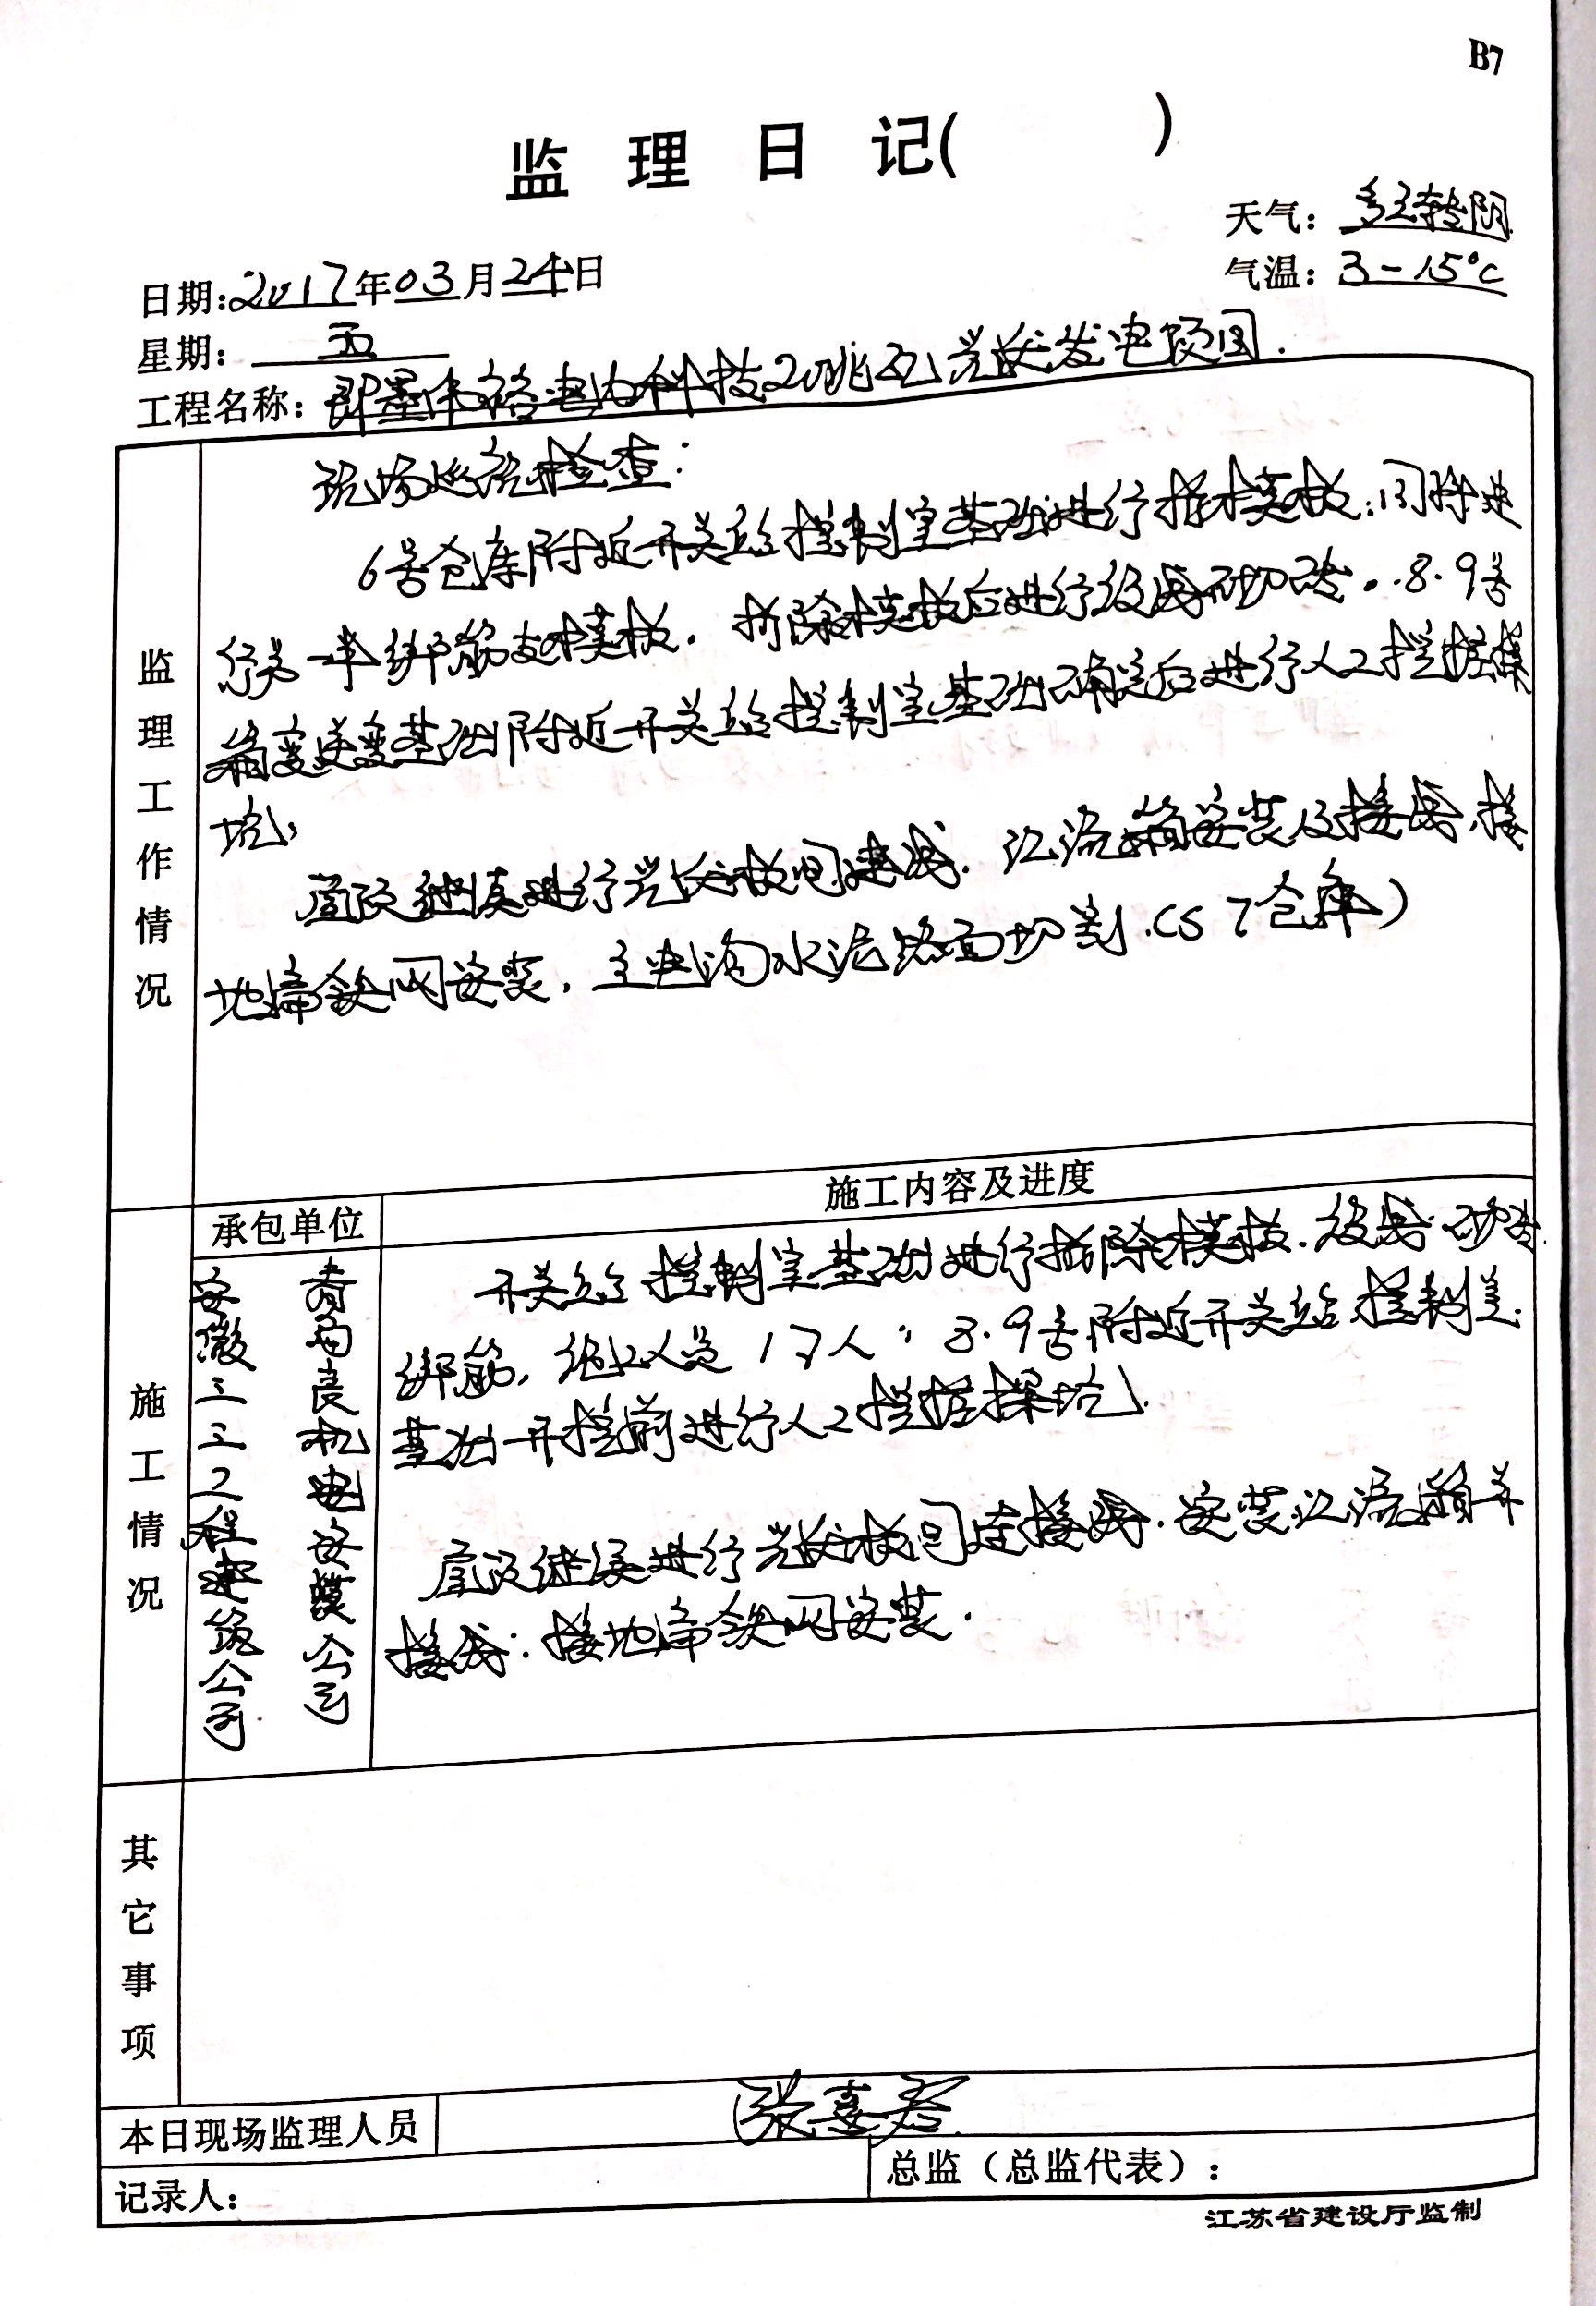 B7
监 理 日 记( )
天气：多云转阴
日期:2017年03月24日
气温：3-15°C
星期：五
工程名称：即墨 裕电力科技20兆瓦光伏发电项目.
监理工作情况
现场巡视检查：
6号仓库附近开关站控制室基础进行拆模板;同时进
行另一半绑筋支模板.拆除模板后进行放线砌砖.8.9号
箱变逆变基础附近开关站控制室基础确定后进行人工挖探
坑,
屋顶继续进行光伏板间连线.汇流箱安装及接线.接
地扁铁网安装,主电沟水泥路面切割.(5 7仓库)
施工情况
承包单位
施工内容及进度
安徽三工程建筑公司
青岛良机电安装公司
开关站控制室基础进行拆除模板.放线.砌砖.
绑筋,施工人员17人;8.9号附近开关站控制室
基础开挖前进行人工挖探坑.
屋顶继续进行光伏板间连接线.安装汇流箱并
接线;接地扁铁网安装.
其它事项
本日现场监理人员
张喜
记录人：
总监（总监代表）：
江苏省建设厅监制